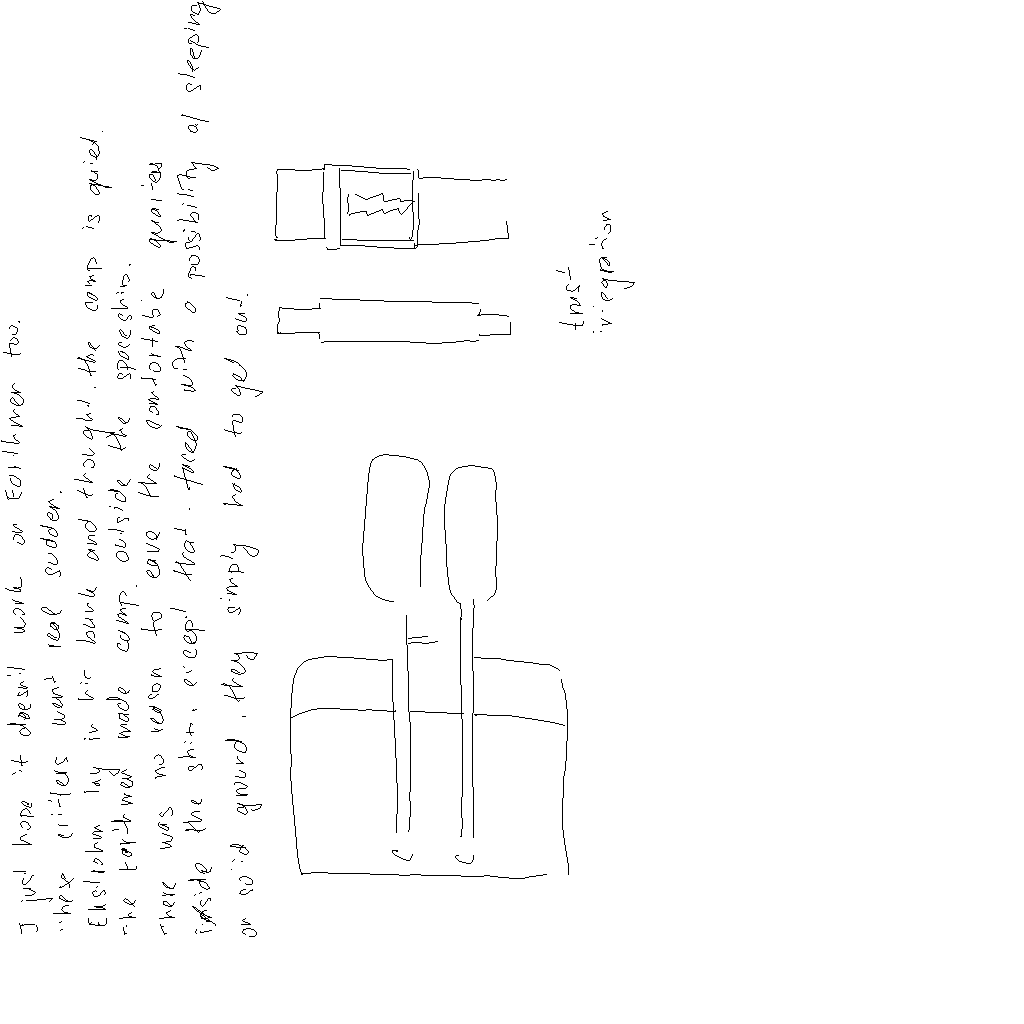 I just hope it doesn't work on Earthmen too.
These critters went real sudden.
Ekstrohm lay in his bunk and thought, the camp is quiet.
The Earthmen made camp outside the spaceship.
There was no reason to leave the comfortable quarters
inside the ship, except that, faced with a possibility of sleeping
on solid ground, they simply had to get out.
trust
C
C